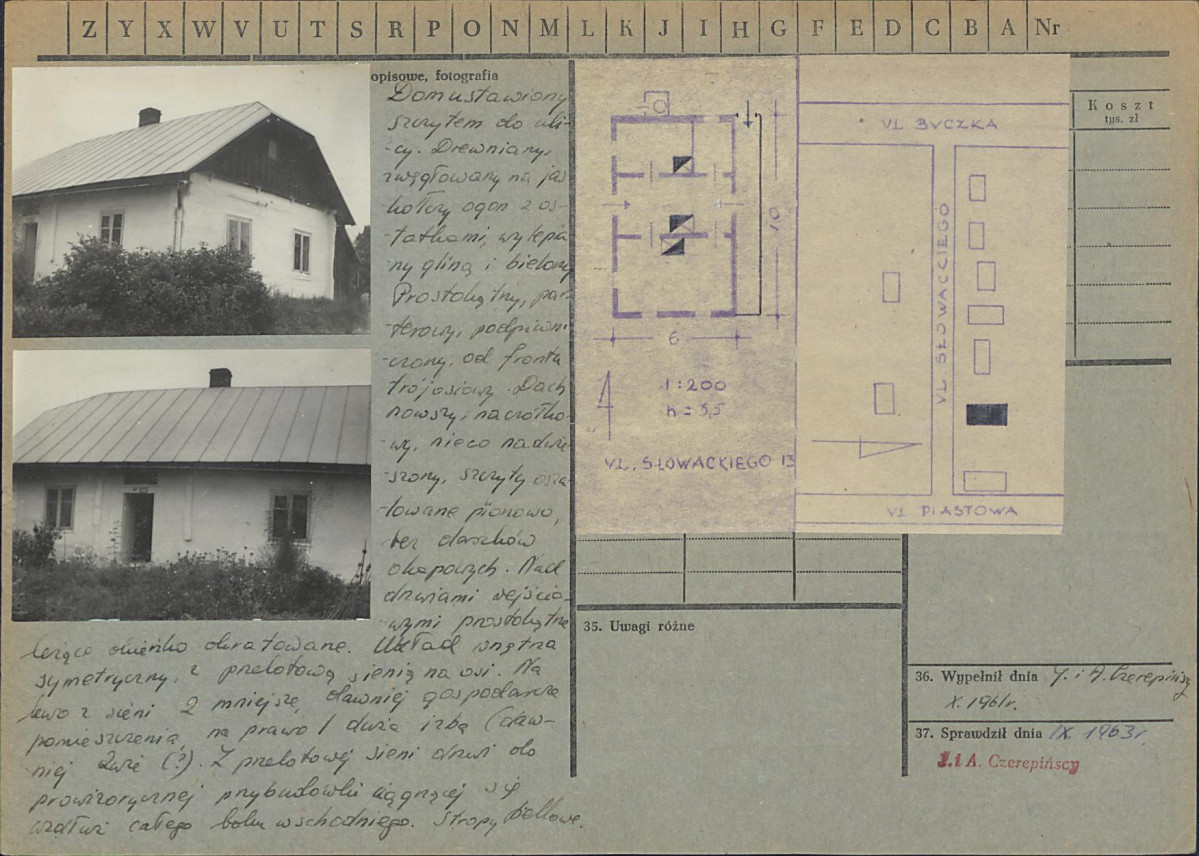 Z Y X W V U T S R P O N M L K J I H G F E D C B A Nr
opisowe, fotografia
Dom ustawiony
szczytem do uli-
-cy. Drewniany,
zwęgłowany na jas-
kółczy ogon z os-
tatkami, wylepia-
ny gliną i bielony
Prostokątny, par-
terowy, podpiwni-
czony, od frontu
trójosiowy. Dach
nowszy, naczółko-
wy, nieco nadwie-
szony, szczyty osza-
lowane pionowo,
bez daszków
okapowych. Nad
drzwiami wejścio-
wymi prostokątne
leżące okienko okratowane. Układ wnętrza
symetryczny, z przelotową sienią na osi. Na
lewo z sieni 2 mniejsze, dawniej gospodarcze
pomieszczenia, na prawo 1 duża izba (daw-
niej 2wie (?). Z przelotowej sieni drzwi do
prowizorycznej przybudówki ciągnącej się
wzdłuż całego boku wschodniego. Stropy belkowe.
10
6
1:200
h = 3,5
VL. SŁOWACKIEGO 13
VL BVCZKA
VL. SŁOWACKIEGO
VL PIASTOWA
Koszt
tys. zł
35. Uwagi różne
36. Wypełnił dnia J. i A. Czerepińscy
X. 1961r.
37. Sprawdził dnia IX. 1963r.
J. i A. Czerepińscy